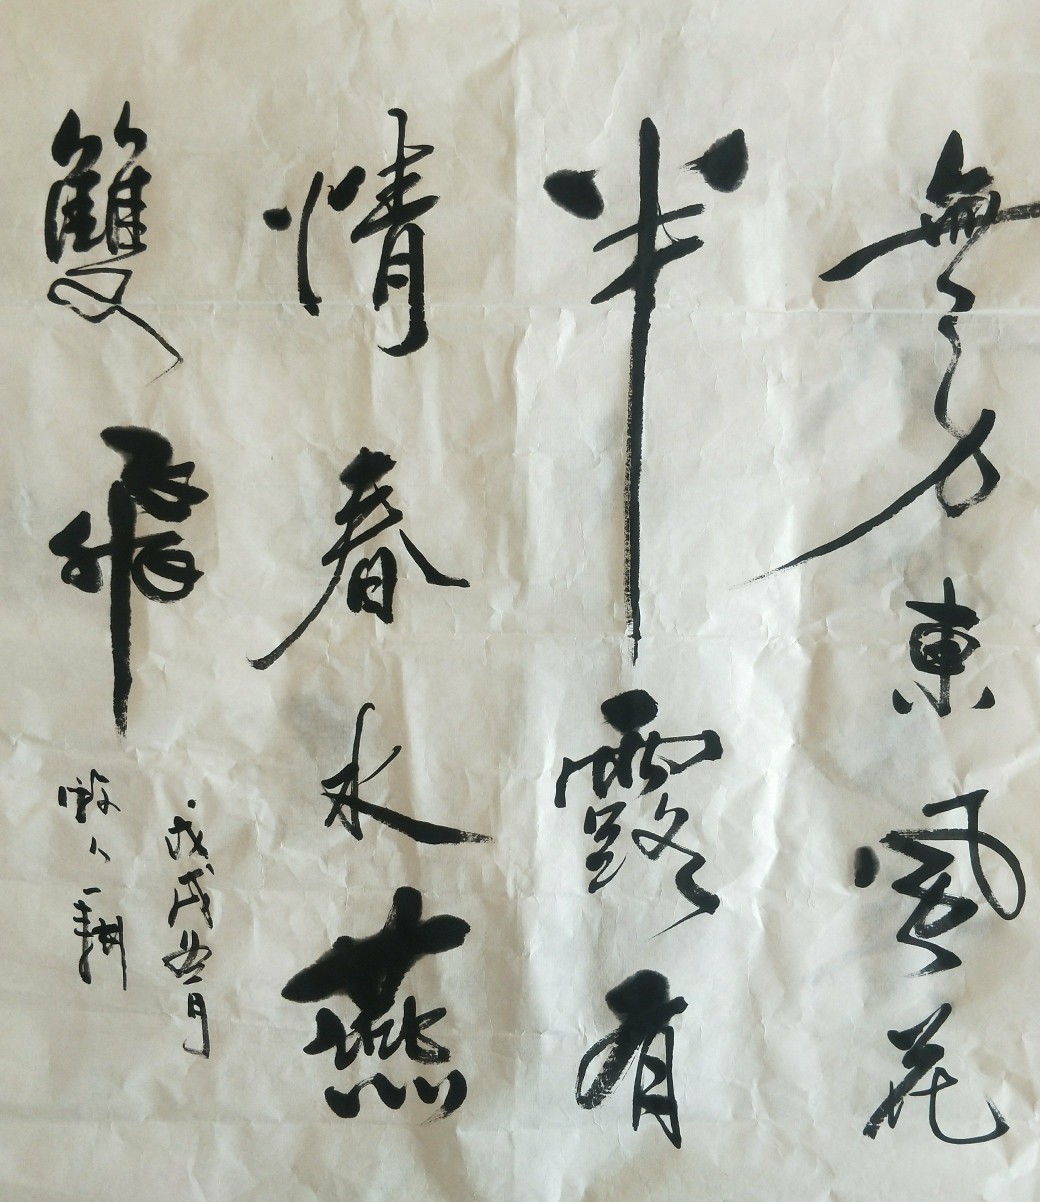 無力東風花
半露有
情春水燕
雙飛
戊戌月
人一耕